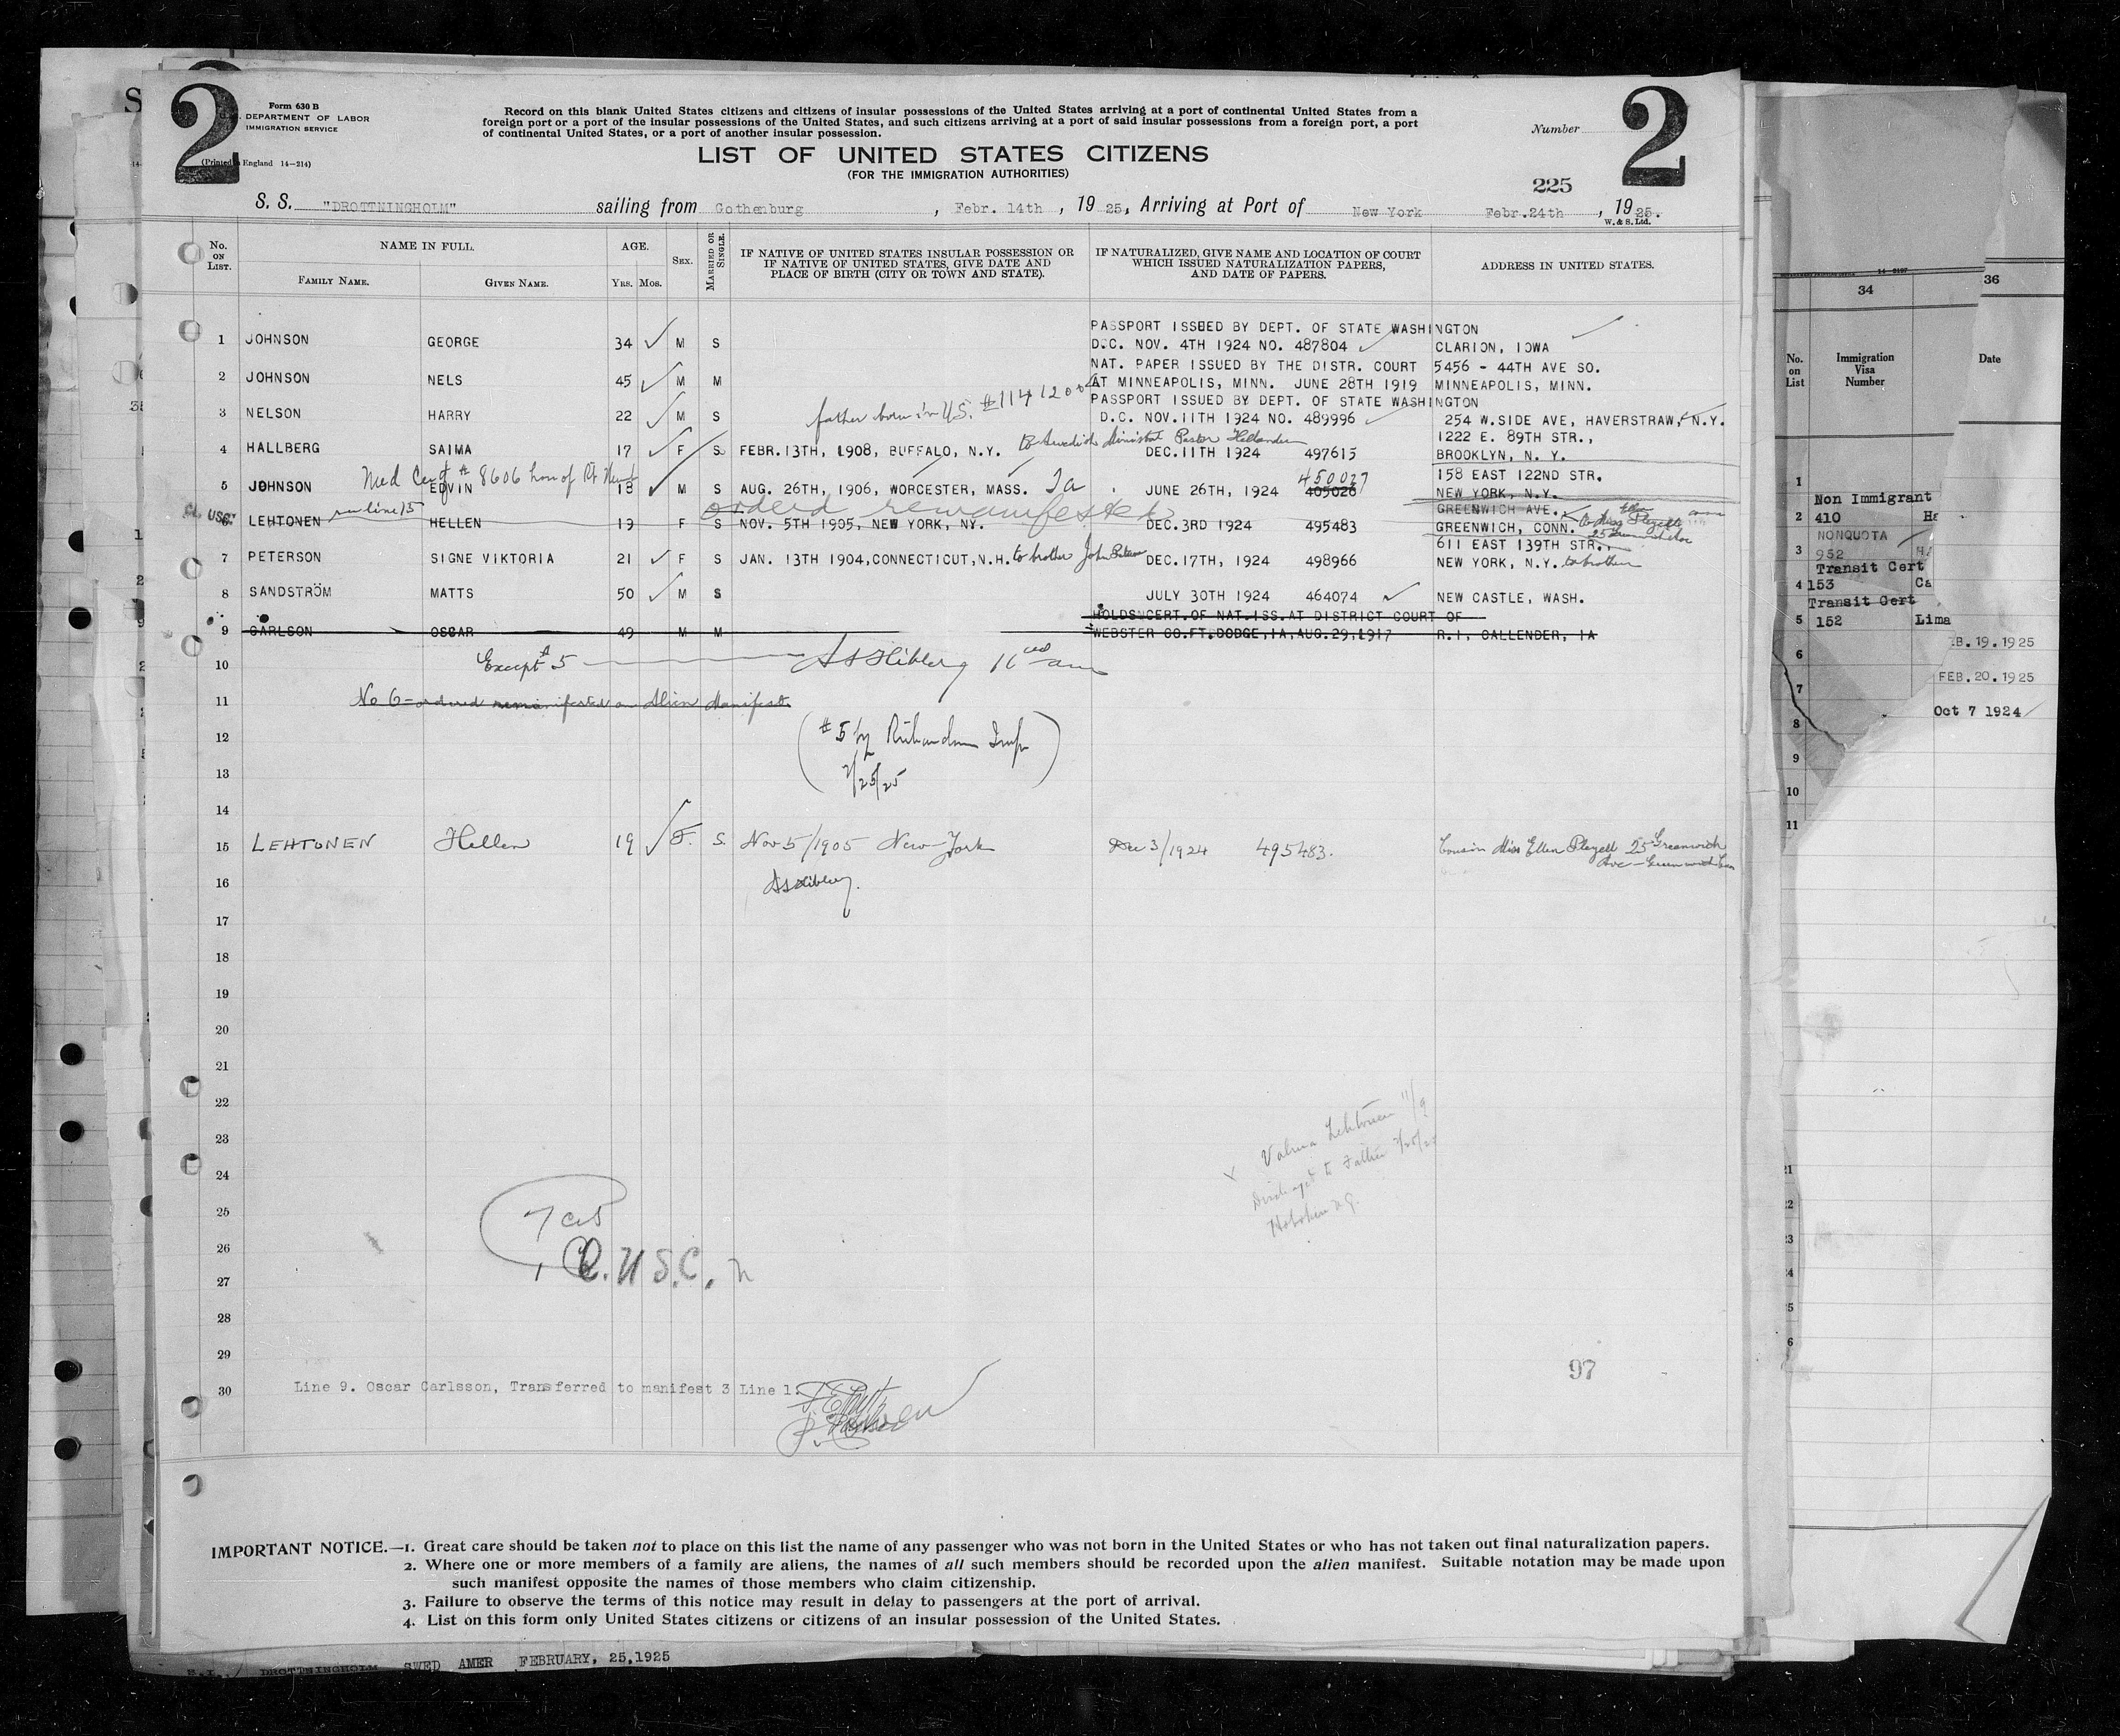 2
2
Form 630 B
DEPARTMENT OF LABOR
IMMIGRATION SERVICE
(Printed in England 14-214)
Record on this blank United States citizens and citizens of insular possessions of the United States arriving at a port of continental United States from a
foreign port or a port of the insular possessions of the United States, and such citizens arriving at a port of said insular possessions from a foreign port, a port
of continental United States, or a port of another insular possession.
Number
LIST OF UNITED STATES CITIZENS
(FOR THE IMMIGRATION AUTHORITIES)
225
S. S. "DROTTNINGHOLM" sailing from Gothenburg, Febr. 14th, 1925, Arriving at Port of New York Febr.24th, 1925.
W. & S. Ltd.
No. ON LIST.
NAME IN FULL.
FAMILY NAME.
GIVEN NAME.
AGE.
YRS. MOS.
SEX.
MARRIED OR SINGLE.
IF NATIVE OF UNITED STATES INSULAR POSSESSION OR
IF NATIVE OF UNITED STATES, GIVE DATE AND
PLACE OF BIRTH (CITY OR TOWN AND STATE).
IF NATURALIZED, GIVE NAME AND LOCATION OF COURT
WHICH ISSUED NATURALIZATION PAPERS,
AND DATE OF PAPERS.
ADDRESS IN UNITED STATES.
PASSPORT ISSUED BY DEPT. OF STATE WASHINGTON
1 JOHNSON GEORGE 34 M S D.C. NOV. 4TH 1924 NO. 487804 CLARION, IOWA
NAT. PAPER ISSUED BY THE DISTR. COURT 5456 - 44TH AVE SO.
2 JOHNSON NELS 45 M M AT MINNEAPOLIS, MINN. JUNE 28TH 1919 MINNEAPOLIS, MINN.
PASSPORT ISSUED BY DEPT. OF STATE WASHINGTON
3 NELSON HARRY 22 M S father born in U.S. D.C. NOV.11TH 1924 NO. 489996 254 W.SIDE AVE, HAVERSTRAW, N.Y.
to Swedish Pastor
1222 E. 89TH STR.,
4 HALLBERG SAIMA 17 F S FEBR.13TH, 1908, BUFFALO, N.Y. DEC.11TH 1924 497615 BROOKLYN, N. Y.
Med Cert # 8606
450027
158 EAST 122ND STR.
5 JOHNSON EDVIN 18 M S AUG. 26TH, 1906, WORCESTER, MASS. JUNE 26TH, 1924 405026 NEW YORK, N.Y.
line 15
ordered remanifested
GREENWICH AVE.
6 LEHTONEN HELLEN 19 F S NOV. 5TH 1905, NEW YORK, NY. DEC.3RD 1924 495483 GREENWICH, CONN.
611 EAST 139TH STR.,
7 PETERSON SIGNE VIKTORIA 21 F S JAN. 13TH 1904,CONNECTICUT,N.H. to brother John DEC.17TH, 1924 498966 NEW YORK, N.Y. to brother
8 SANDSTRÖM MATTS 50 M S JULY 30TH 1924 464074 NEW CASTLE, WASH.
HOLDS CERT.OF NAT.ISS.AT DISTRICT COURT OF
9 CARLSON OSCAR 49 M M WEBSTER CO.FT.DODGE,IA,AUG.29,1917 R.1, CALLENDER, IA
10 Except # 5
11 No 6 - ordered remanifested on Alien Manifest.
12 # 5 by Richardson Insp
13 2/25/25
14
15 LEHTONEN Hellen 19 F. S. Nov 5/1905 New York Dec 3/1924 495483. Cousin Miss Ellen 25 Greenwich
Ave - Greenwich
16
17
18
19
20
21
22
23
24
25
26
27
28
29
Lehtonen 11/9
Discharged to Father 2/25/25
Hoboken
U.S.C.
97
30 Line 9. Oscar Carlsson, Transferred to manifest 3 Line 1.
IMPORTANT NOTICE.—1. Great care should be taken not to place on this list the name of any passenger who was not born in the United States or who has not taken out final naturalization papers.
2. Where one or more members of a family are aliens, the names of all such members should be recorded upon the alien manifest. Suitable notation may be made upon
such manifest opposite the names of those members who claim citizenship.
3. Failure to observe the terms of this notice may result in delay to passengers at the port of arrival.
4. List on this form only United States citizens or citizens of an insular possession of the United States.
DROTTNINGHOLM SWED AMER FEBRUARY, 25,1925
14-2107
34
36
No. on List
Immigration Visa Number
Date
1 Non Immigrant
2 410
NONQUOTA
3 952
Transit Cert
4 153
Transit Cert
5 152 Lima
B.19.1925
6
FEB.20.1925
7
Oct 7 1924
8
9
10
11
21
22